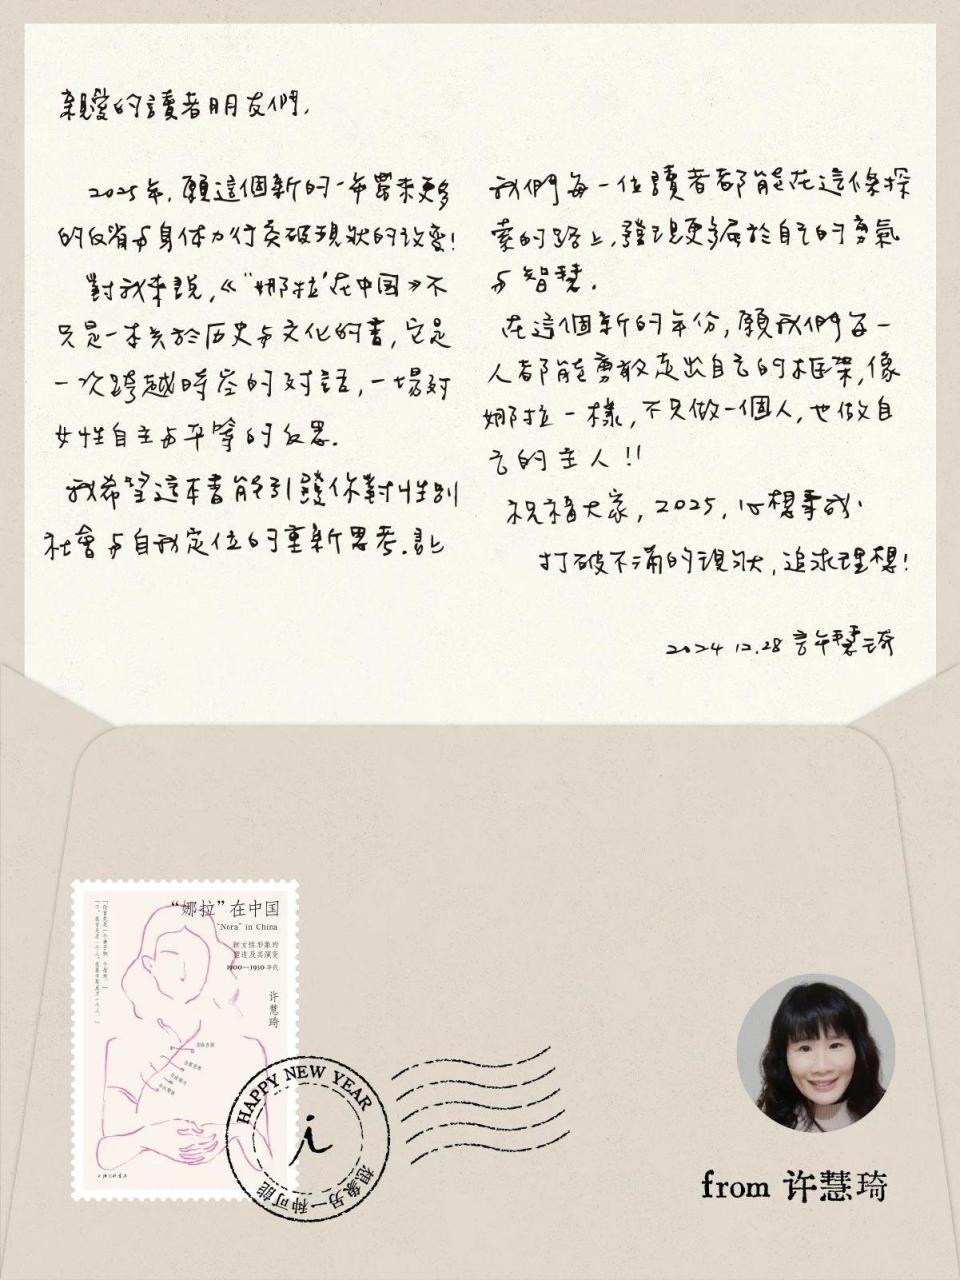 親愛的讀者朋友們,
2025年,願這個新的一年帶來更多
的反省与身体力行突破現狀的改變!
對我來說,《“娜拉”在中国》不
只是一本关於历史与文化的書,它是
一次跨越時空的対話,一場対
女性自主与平等的反思.
我希望這本書能引發你對性別
社會与自我定位的重新思考.讓
我們每一位讀者都能在這條探
索的路上,發現更多屬於自己的勇氣
与智慧.
在這個新的年份,願我們每一
人都能勇敢走出自己的框架,像
娜拉一樣,不只做一個人,也做自
己的主人!!
祝福大家,2025,心想事成.
打破不滿的現狀,追求理想!
2024.12.28 許慧琦
“娜拉”在中国
"Nora" in China
新女性形象的
塑造及其演变
1900—1930年代
许慧琦
HAPPY NEW YEAR
i
想象另一种可能
from 许慧琦